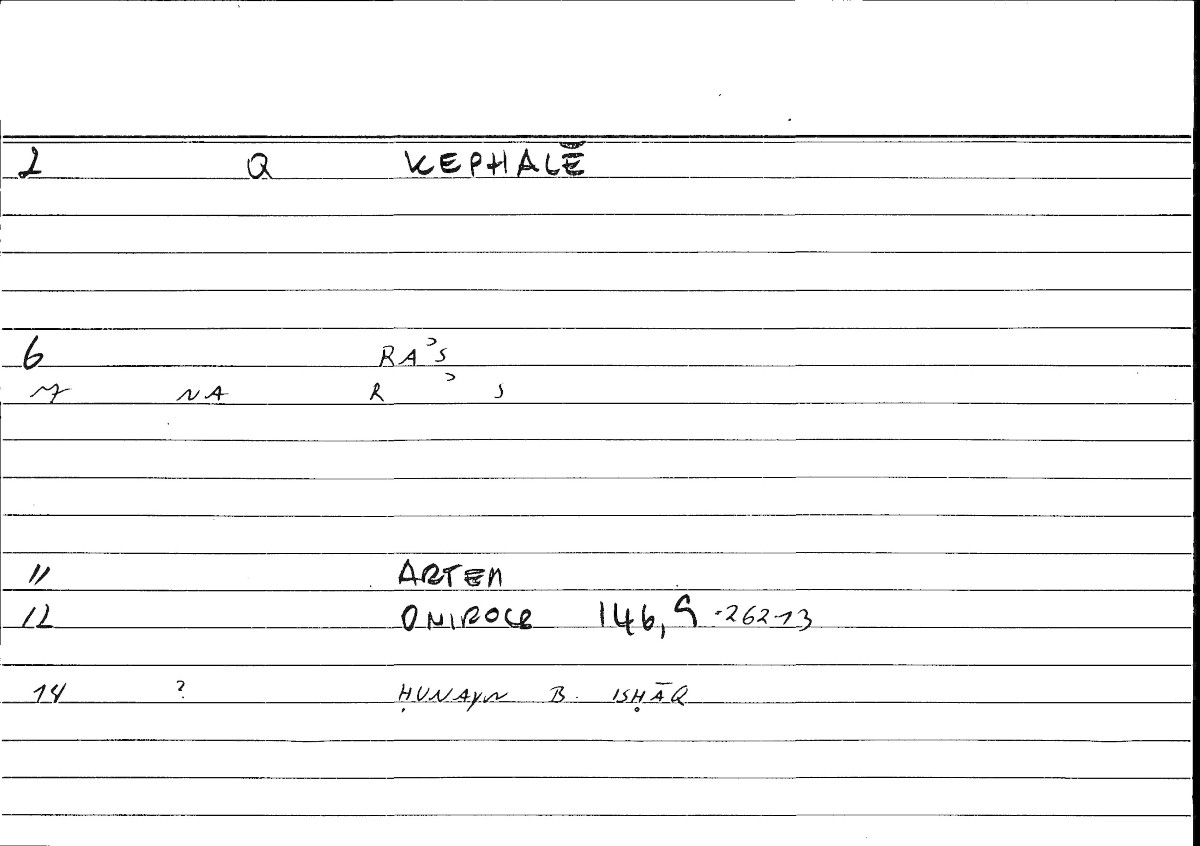 2 Q KEPHALĒ
6 RAʾS
7 NA R ʾ S
11 ARTEM
12 ONIROCR 146,9 -262-13
14 ? ḤUNAYN B. ISḤĀQ